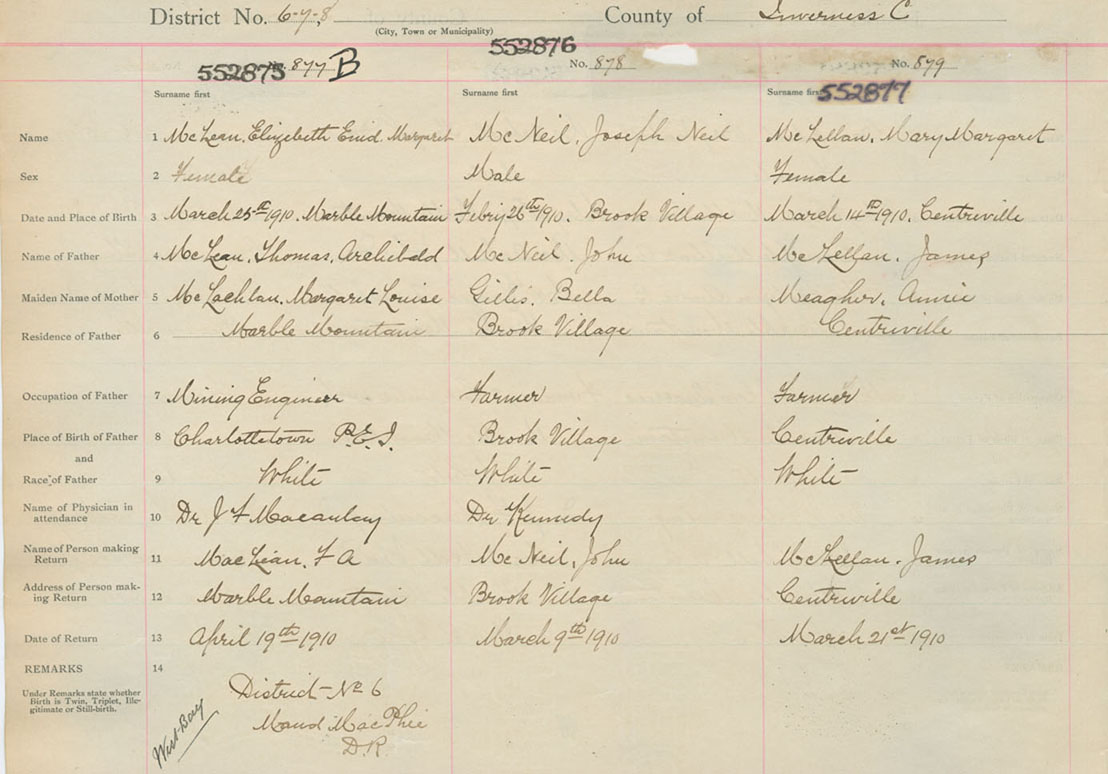 District No. 6-7-8 County of Inverness C
(City, Town or Municipality)
552875 877 B 552876 No. 878 No. 879
Surname first Surname first Surname first 552877
Name 1 McLean, Elizebeth Enid Margaret McNeil, Joseph Neil McLellan, Mary Margaret
Sex 2 Female Male Female
Date and Place of Birth 3 March 25th 1910. Marble Mountain Febry 26th 1910. Brook Village March 14th 1910. Centreville
Name of Father 4 McLean, Thomas, Archibald McNeil, John McLellan, James
Maiden Name of Mother 5 McLachlan, Margaret Louise Gillis, Bella Meagher, Annie
Residence of Father 6 Marble Mountain Brook Village Centreville
Occupation of Father 7 Mining Engineer Farmer Farmer
Place of Birth of Father 8 Charlottetown P.E.I. Brook Village Centreville
and
Race of Father 9 White White White
Name of Physician in
attendance 10 Dr J F Macaulay Dr Kennedy
Name of Person making
Return 11 MacLean, T A McNeil, John McLellan, James
Address of Person mak-
ing Return 12 Marble Mountain Brook Village Centreville
Date of Return 13 April 19th 1910 March 9th 1910 March 21st 1910
REMARKS 14
Under Remarks state whether
Birth is Twin, Triplet, Ille-
gitimate or Still-birth.
District No 6
Maud MacPhie
D.R.
West Bay